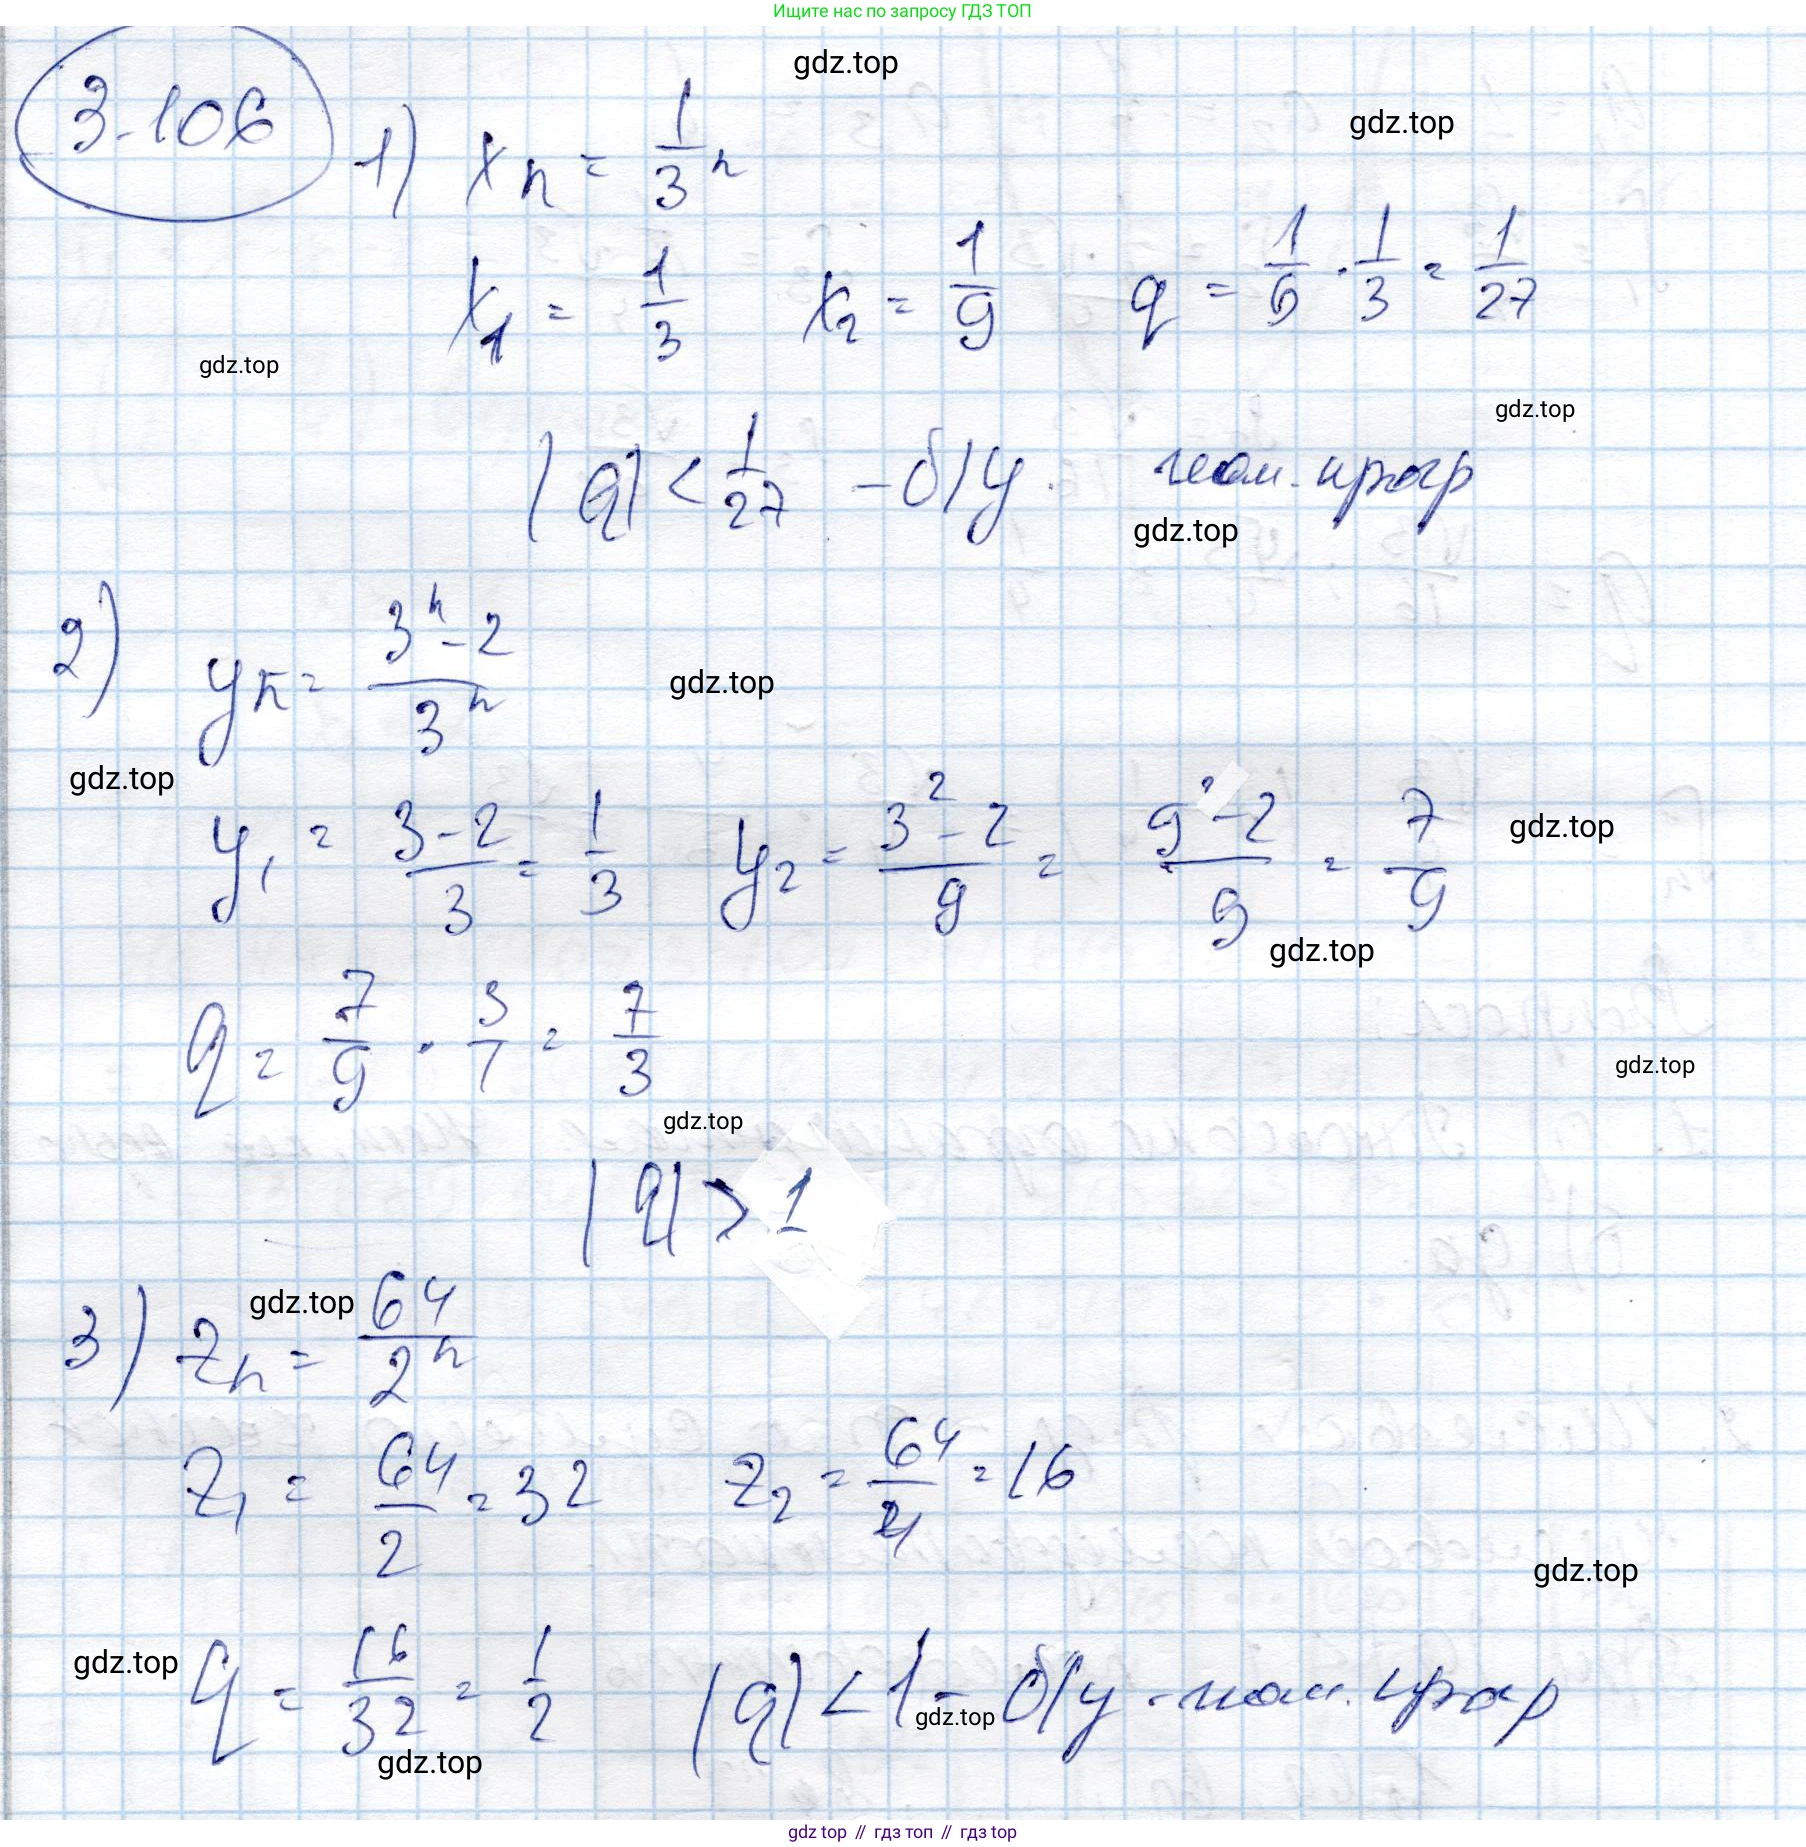 Ищите нас по запросу ГДЗ ТОП
gdz.top
3.106
1) xn = 1/3^n
gdz.top
x1 = 1/3 x2 = 1/9 q = 1/9 · 1/3 = 1/27
gdz.top
gdz.top
|q| < 1/27 - б/у. геом. прогр
gdz.top
2) yn = (3^n - 2)/3^n
gdz.top
gdz.top
y1 = (3-2)/3 = 1/3 y2 = (3^2 - 2)/9 = (9 - 2)/9 = 7/9
gdz.top
gdz.top
q = 7/9 · 3/1 = 7/3
gdz.top
gdz.top
|q| > 1
3) zn = 64/2^n
gdz.top
z1 = 64/2 = 32 z2 = 64/4 = 16
gdz.top
q = 16/32 = 1/2 |q| < 1 - б/у. геом. прогр
gdz.top
gdz.top
gdz.top
gdz top // гдз топ // gdz top